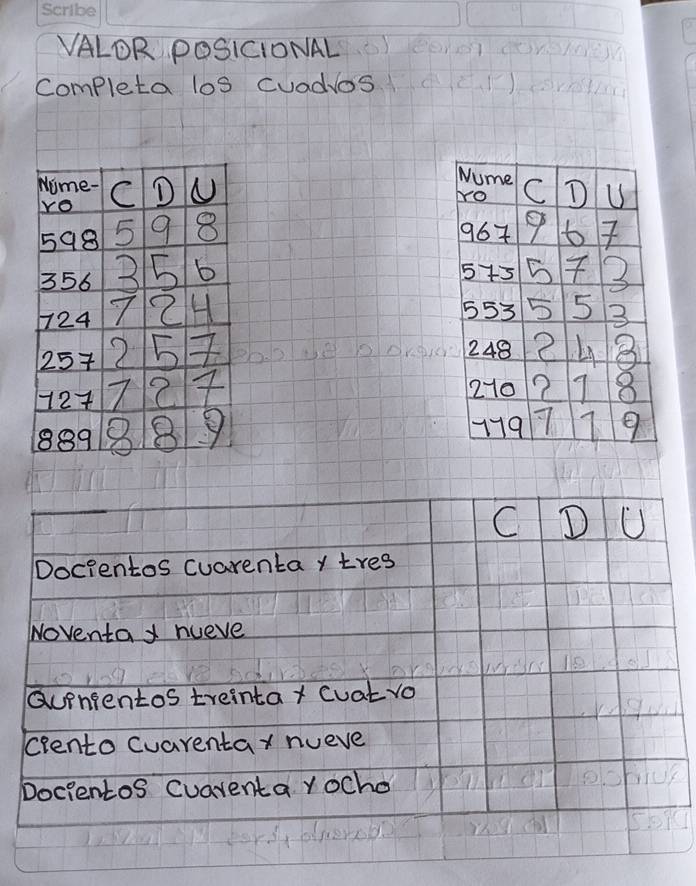 Scribe
VALOR POSICIONAL
Completa los cuadros
Núme-ro C D U
598 5 9 8
356 3 5 6
724 7 2 4
257 2 5 7
727 7 2 7
889 8 8 9
Nume ro C D U
967 9 6 7
573 5 7 3
553 5 5 3
248 2 4 8
210 2 1 8
779 7 7 9
C D U
Docientos cuarenta y tres
Noventa y nueve
Quinientos treinta y cuatro
Ciento cuarenta y nueve
Docientos cuarenta y ocho